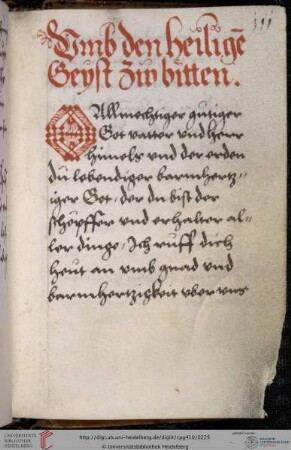 111
Vmb den heiligē
Geyst zw bitten.
O Allmechtiger gutiger
Got vatter vnd herr
himels vnd der erden
du lebendiger barmhertz-
iger Got, der du bist der
schöpffer vnd erhalter al-
ler dinge, Ich ruff dich
heut an vmb gnad vnd
barmhertzigkeit vber vns
http://digi.ub.uni-heidelberg.de/diglit/cpg419/0225
© Universitätsbibliothek Heidelberg
UNIVERSITÄTS-
BIBLIOTHEK
HEIDELBERG